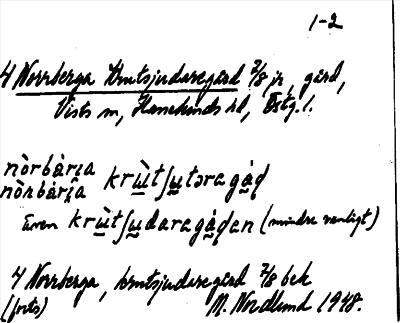 1-2
4 Norrberga Krutsjudaregård 7/8 jr, gård,
Vists sn, Hanekinds hd, Östg. l.
nòrbàrɩa krùtʃutəragàɖ
nòrbàrɩa
Även krùtʃudaragàɖan (mindre vanligt)
4 Norrberga, krutsjudaregård 7/8 bek
(forts) M. Nordlund 1948.